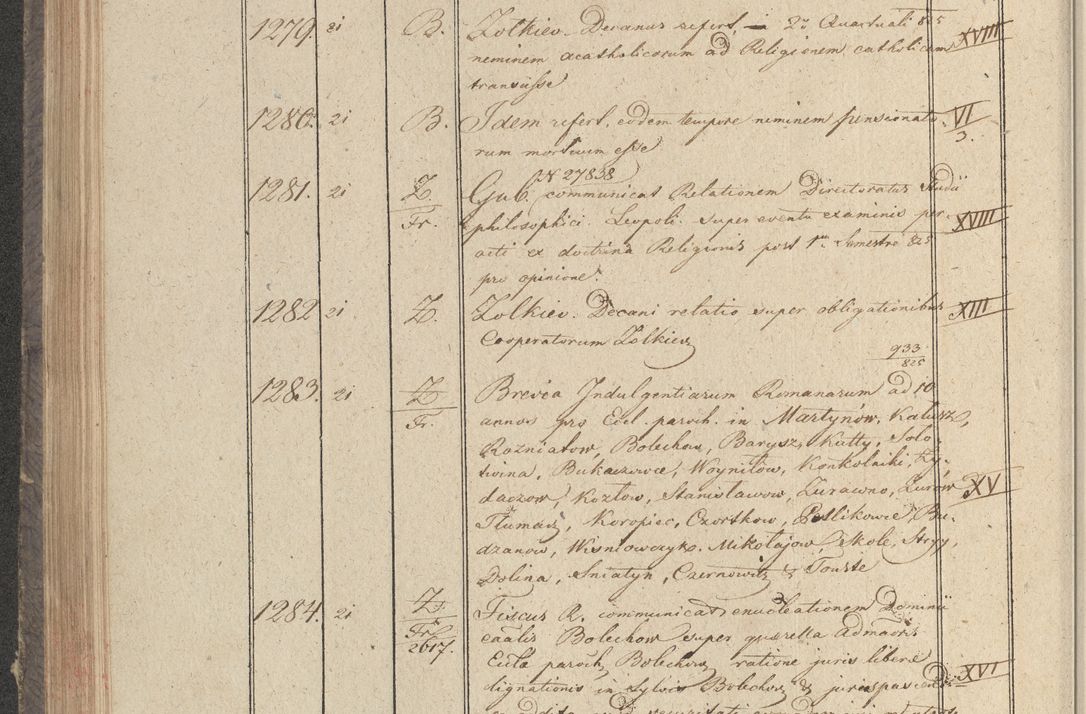 1279. 21 B. Zolkiev. Decanus refert, in 2do Quartali 825 XVIII
neminem acatholicorum ad Religionem catholicam
transiisse
1280. 21 B. Idem refert, eodem tempore neminem pensionato- VI
rum mortuum esse 3.
N 27838
1281. 21 Z. Gub. communicat Relationem Directoratus Studii
Fr. philosophici Leopoli super eventu examinis per- XVIII
acti ex doctrina Religionis post 1um Semestre 825
pro opinione.
1282 21 Z. Zolkiev. Decani relatio super obligationibus XIII
Cooperatorum Zolkiew
933
825
1283. 21 Z. Brevea Indulgentiarum Romanarum ad 10
Fr. annos pro Eccl. paroch. in Martynów, Kalusz,
Rozniatow, Bolechow, Barysz, Kutty, Solo-
twina, Bukaczowce, Woyniłow, Konkolniki, Ży-
daczow, Kozłow, Stanisławow, Zurawno, Zurów XV
Tłumacz, Koropiec, Czortkow, Petlikowce, Bu-
dzanow, Wisniowczyk, Mikołajow, Skole, Stryy,
Dolina, Sniatyn, Czernowitz & Touste
1284. 21 Z. Fiscus R. communicat enucleationem Dominii
Fr. caalis Bolechow super querella Admoris
2617.
Eccla paroch. Bolechow ratione juris libere
lignationis in sylvis Bolechow & juris pascendi XVI